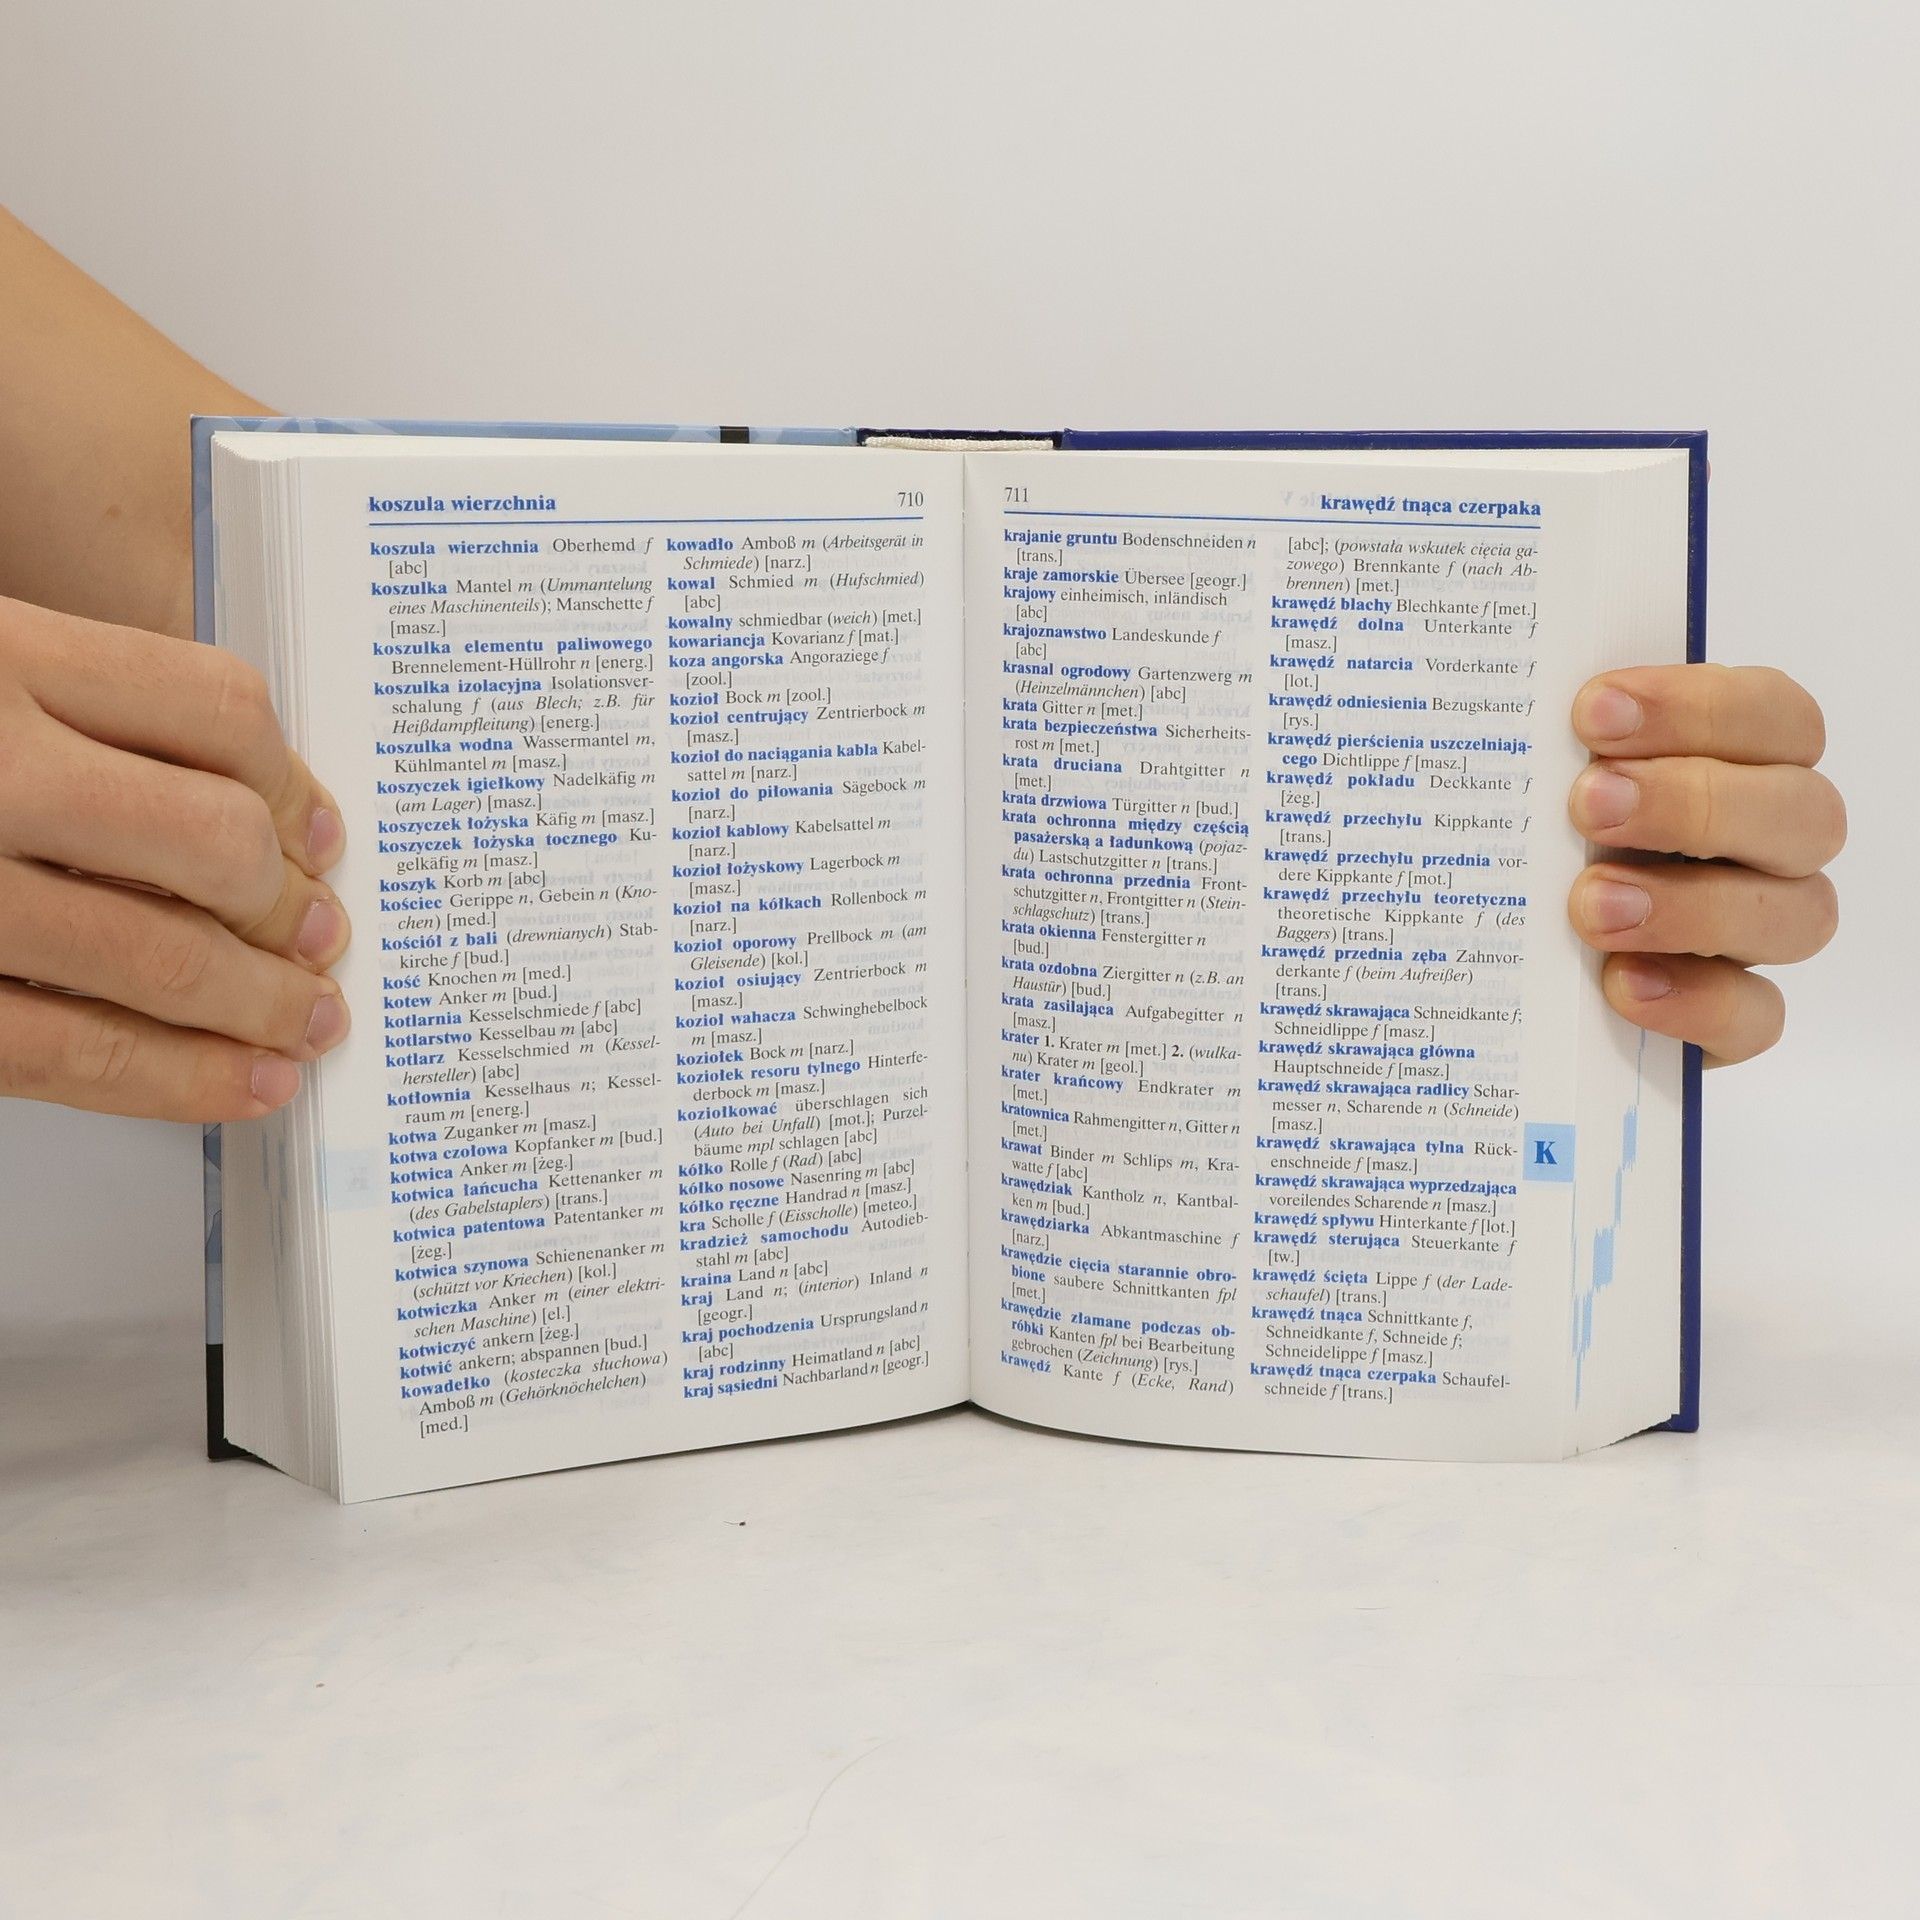 koszula wierzchnia 710
koszula wierzchnia Oberhemd f
[abc]
koszulka Mantel m (Ummantelung
eines Maschinenteils); Manschette f
[masz.]
koszulka elementu paliwowego
Brennelement-Hüllrohr n [energ.]
koszulka izolacyjna Isolationsver-
schalung f (aus Blech; z.B. für
Heißdampfleitung) [energ.]
koszulka wodna Wassermantel m,
Kühlmantel m [masz.]
koszyczek igiełkowy Nadelkäfig m
(am Lager) [masz.]
koszyczek łożyska Käfig m [masz.]
koszyczek łożyska tocznego Ku-
gelkäfig m [masz.]
koszyk Korb m [abc]
kościec Gerippe n, Gebein n (Kno-
chen) [med.]
kościół z bali (drewnianych) Stab-
kirche f [bud.]
kość Knochen m [med.]
kotew Anker m [bud.]
kotlarnia Kesselschmiede f [abc]
kotlarstwo Kesselbau m [abc]
kotlarz Kesselschmied m (Kessel-
hersteller) [abc]
kotłownia Kesselhaus n; Kessel-
raum m [energ.]
kotwa Zuganker m [masz.]
kotwa czołowa Kopfanker m [bud.]
kotwica Anker m [żeg.]
kotwica łańcucha Kettenanker m
(des Gabelstaplers) [trans.]
kotwica patentowa Patentanker m
[żeg.]
kotwica szynowa Schienenanker m
(schützt vor Kriechen) [kol.]
kotwiczka Anker m (einer elektri-
schen Maschine) [el.]
kotwiczyć ankern [żeg.]
kotwić ankern; abspannen [bud.]
kowadełko (kosteczka słuchowa)
Amboß m (Gehörknöchelchen)
[med.]
kowadło Amboß m (Arbeitsgerät in
Schmiede) [narz.]
kowal Schmied m (Hufschmied)
[abc]
kowalny schmiedbar (weich) [met.]
kowariancja Kovarianz f [mat.]
koza angorska Angoraziege f
[zool.]
kozioł Bock m [zool.]
kozioł centrujący Zentrierbock m
[masz.]
kozioł do naciągania kabla Kabel-
sattel m [narz.]
kozioł do piłowania Sägebock m
[narz.]
kozioł kablowy Kabelsattel m
[narz.]
kozioł łożyskowy Lagerbock m
[masz.]
kozioł na kółkach Rollenbock m
[narz.]
kozioł oporowy Prellbock m (am
Gleisende) [kol.]
kozioł osiujący Zentrierbock m
[masz.]
kozioł wahacza Schwinghebelbock
m [masz.]
koziołek Bock m [narz.]
koziołek resoru tylnego Hinterfe-
derbock m [masz.]
koziołkować überschlagen sich
(Auto bei Unfall) [mot.]; Purzel-
bäume mpl schlagen [abc]
kółko Rolle f (Rad) [abc]
kółko nosowe Nasenring m [abc]
kółko ręczne Handrad n [masz.]
kra Scholle f (Eisscholle) [meteo.]
kradzież samochodu Autodieb-
stahl m [abc]
kraina Land n [abc]
kraj Land n; (interior) Inland n
[geogr.]
kraj pochodzenia Ursprungsland n
[abc]
kraj rodzinny Heimatland n [abc]
kraj sąsiedni Nachbarland n [geogr.]
711 krawędź tnąca czerpaka
krajanie gruntu Bodenschneiden n
[trans.]
kraje zamorskie Übersee [geogr.]
krajowy einheimisch, inländisch
[abc]
krajoznawstwo Landeskunde f
[abc]
krasnal ogrodowy Gartenzwerg m
(Heinzelmännchen) [abc]
krata Gitter n [met.]
krata bezpieczeństwa Sicherheits-
rost m [met.]
krata druciana Drahtgitter n
[met.]
krata drzwiowa Türgitter n [bud.]
krata ochronna między częścią
pasażerską a ładunkową (pojaz-
du) Lastschutzgitter n [trans.]
krata ochronna przednia Front-
schutzgitter n, Frontgitter n (Stein-
schlagschutz) [trans.]
krata okienna Fenstergitter n
[bud.]
krata ozdobna Ziergitter n (z.B. an
Haustür) [bud.]
krata zasilająca Aufgabegitter n
[masz.]
krater 1. Krater m [met.] 2. (wulka-
nu) Krater m [geol.]
krater krańcowy Endkrater m
[met.]
kratownica Rahmengitter n, Gitter n
[met.]
krawat Binder m Schlips m, Kra-
watte f [abc]
krawędziak Kantholz n, Kantbal-
ken m [bud.]
krawędziarka Abkantmaschine f
[narz.]
krawędzie cięcia starannie obro-
bione saubere Schnittkanten fpl
[met.]
krawędzie złamane podczas ob-
róbki Kanten fpl bei Bearbeitung
gebrochen (Zeichnung) [rys.]
krawędź Kante f (Ecke, Rand)
[abc]; (powstała wskutek cięcia ga-
zowego) Brennkante f (nach Ab-
brennen) [met.]
krawędź blachy Blechkante f [met.]
krawędź dolna Unterkante f
[masz.]
krawędź natarcia Vorderkante f
[lot.]
krawędź odniesienia Bezugskante f
[rys.]
krawędź pierścienia uszczelniają-
cego Dichtlippe f [masz.]
krawędź pokładu Deckkante f
[żeg.]
krawędź przechyłu Kippkante f
[trans.]
krawędź przechyłu przednia vor-
dere Kippkante f [mot.]
krawędź przechyłu teoretyczna
theoretische Kippkante f (des
Baggers) [trans.]
krawędź przednia zęba Zahnvor-
derkante f (beim Aufreißer)
[trans.]
krawędź skrawająca Schneidkante f;
Schneidlippe f [masz.]
krawędź skrawająca główna
Hauptschneide f [masz.]
krawędź skrawająca radlicy Schar-
messer n, Scharende n (Schneide)
[masz.]
krawędź skrawająca tylna Rück-
enschneide f [masz.]
krawędź skrawająca wyprzedzająca
voreilendes Scharende n [masz.]
krawędź spływu Hinterkante f [lot.]
krawędź sterująca Steuerkante f
[tw.]
krawędź ścięta Lippe f (der Lade-
schaufel) [trans.]
krawędź tnąca Schnittkante f,
Schneidkante f, Schneide f;
Schneidelippe f [masz.]
krawędź tnąca czerpaka Schaufel-
schneide f [trans.]
K